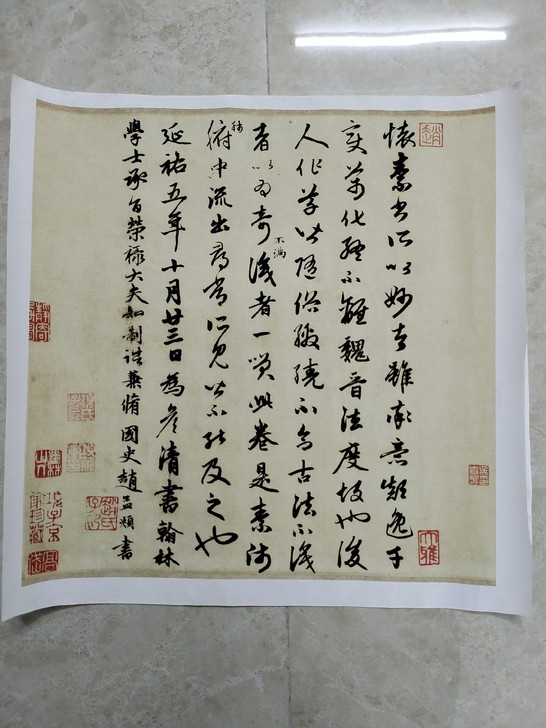 懷素書所以妙者雖率意顛逸千
變萬化終不離魏晉法度故也後
人作草皆隨俗繳繞不合古法不識
者以為奇不滿識者一笑此卷是素師
肺腑中流出尋常所見皆不能及之也
延祐五年十月廿三日為彥清書翰林
學士承旨榮祿大夫知制誥兼脩國史趙孟頫書
趙
大雅
項子京家珍藏